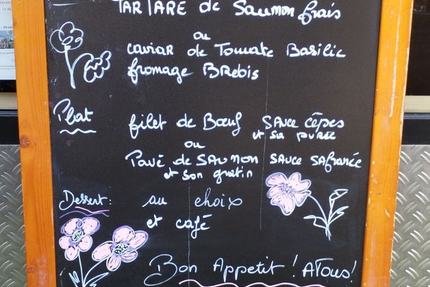 TARTARE de Saumon frais
ou
caviar de Tomate Basilic
fromage Brebis
Plat
filet de Bœuf sauce cèpes
et sa purée
ou
Pavé de SAUMON sauce safranée
et son gratin
Dessert: au choix
et café
Bon Appetit ! ATous!